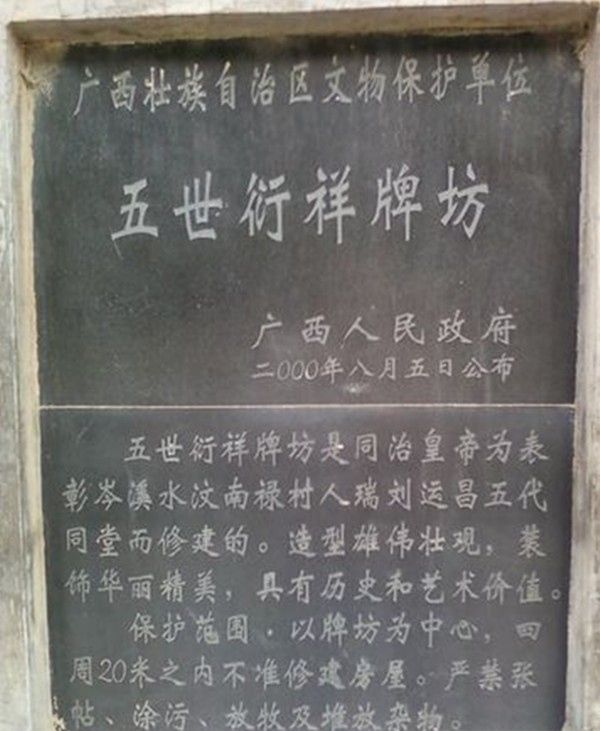 广西壮族自治区文物保护单位
五世衍祥牌坊
广西人民政府
二000年八月五日公布
五世衍祥牌坊是同治皇帝为表
彰岑溪水汶南禄村人瑞刘运昌五代
同堂而修建的。造型雄伟壮观，装
饰华丽精美，具有历史和艺术价值。
保护范围·以牌坊为中心，四
周20米之内不准修建房屋。严禁张
帖、涂污、放牧及堆放杂物。